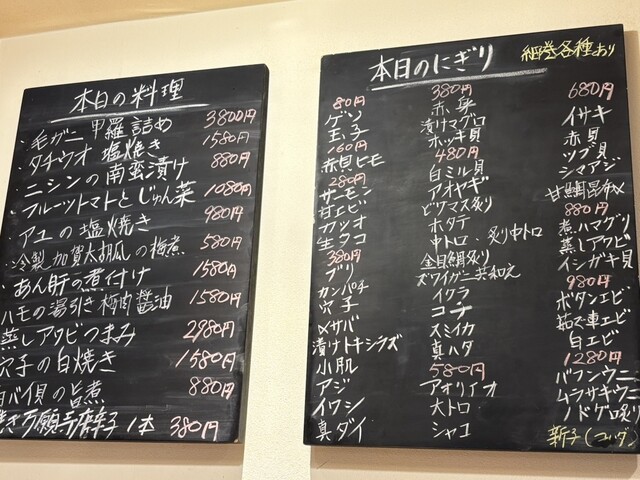 本日の料理
・毛ガニ 甲羅詰め 3800円
・タチウオ 塩焼き 1580円
・ニシンの南蛮漬け 880円
・フルーツトマトとじゅん菜 1080円
・アユの塩焼き 980円
・冷製 加賀太胡瓜の梅煮 580円
・あん肝の煮付け 1580円
ハモの湯引き 梅肉醤油 1580円
蒸しアワビつまみ 2980円
穴子の白焼き 1580円
白バイ貝の旨煮 880円
焼き万願寺唐辛子 1本 380円
本日のにぎり
細巻各種あり
80円
ゲソ
玉子
160円
赤貝ヒモ
280円
サーモン
甘エビ
カツオ
生タコ
380円
ブリ
カンパチ
穴子
〆サバ
漬けトキシラズ
小肌
アジ
イワシ
真ダイ
380円
赤身
漬けマグロ
ホッキ貝
480円
白ミル貝
アオヤギ
ビワマス炙り
ホタテ
中トロ・炙り中トロ
金目鯛炙り
ズワイガニ共和え
イクラ
コチ
スミイカ
真ハタ
580円
アオリイカ
大トロ
シャコ
680円
イサキ
赤貝
ツブ貝
シマアジ
甘鯛昆布〆
880円
煮ハマグリ
蒸しアワビ
イシガキ貝
980円
ボタンエビ
茹で車エビ
白エビ
1280円
バフンウニ
ムラサキウニ
ノドグロ炙り
新子(コハダ)